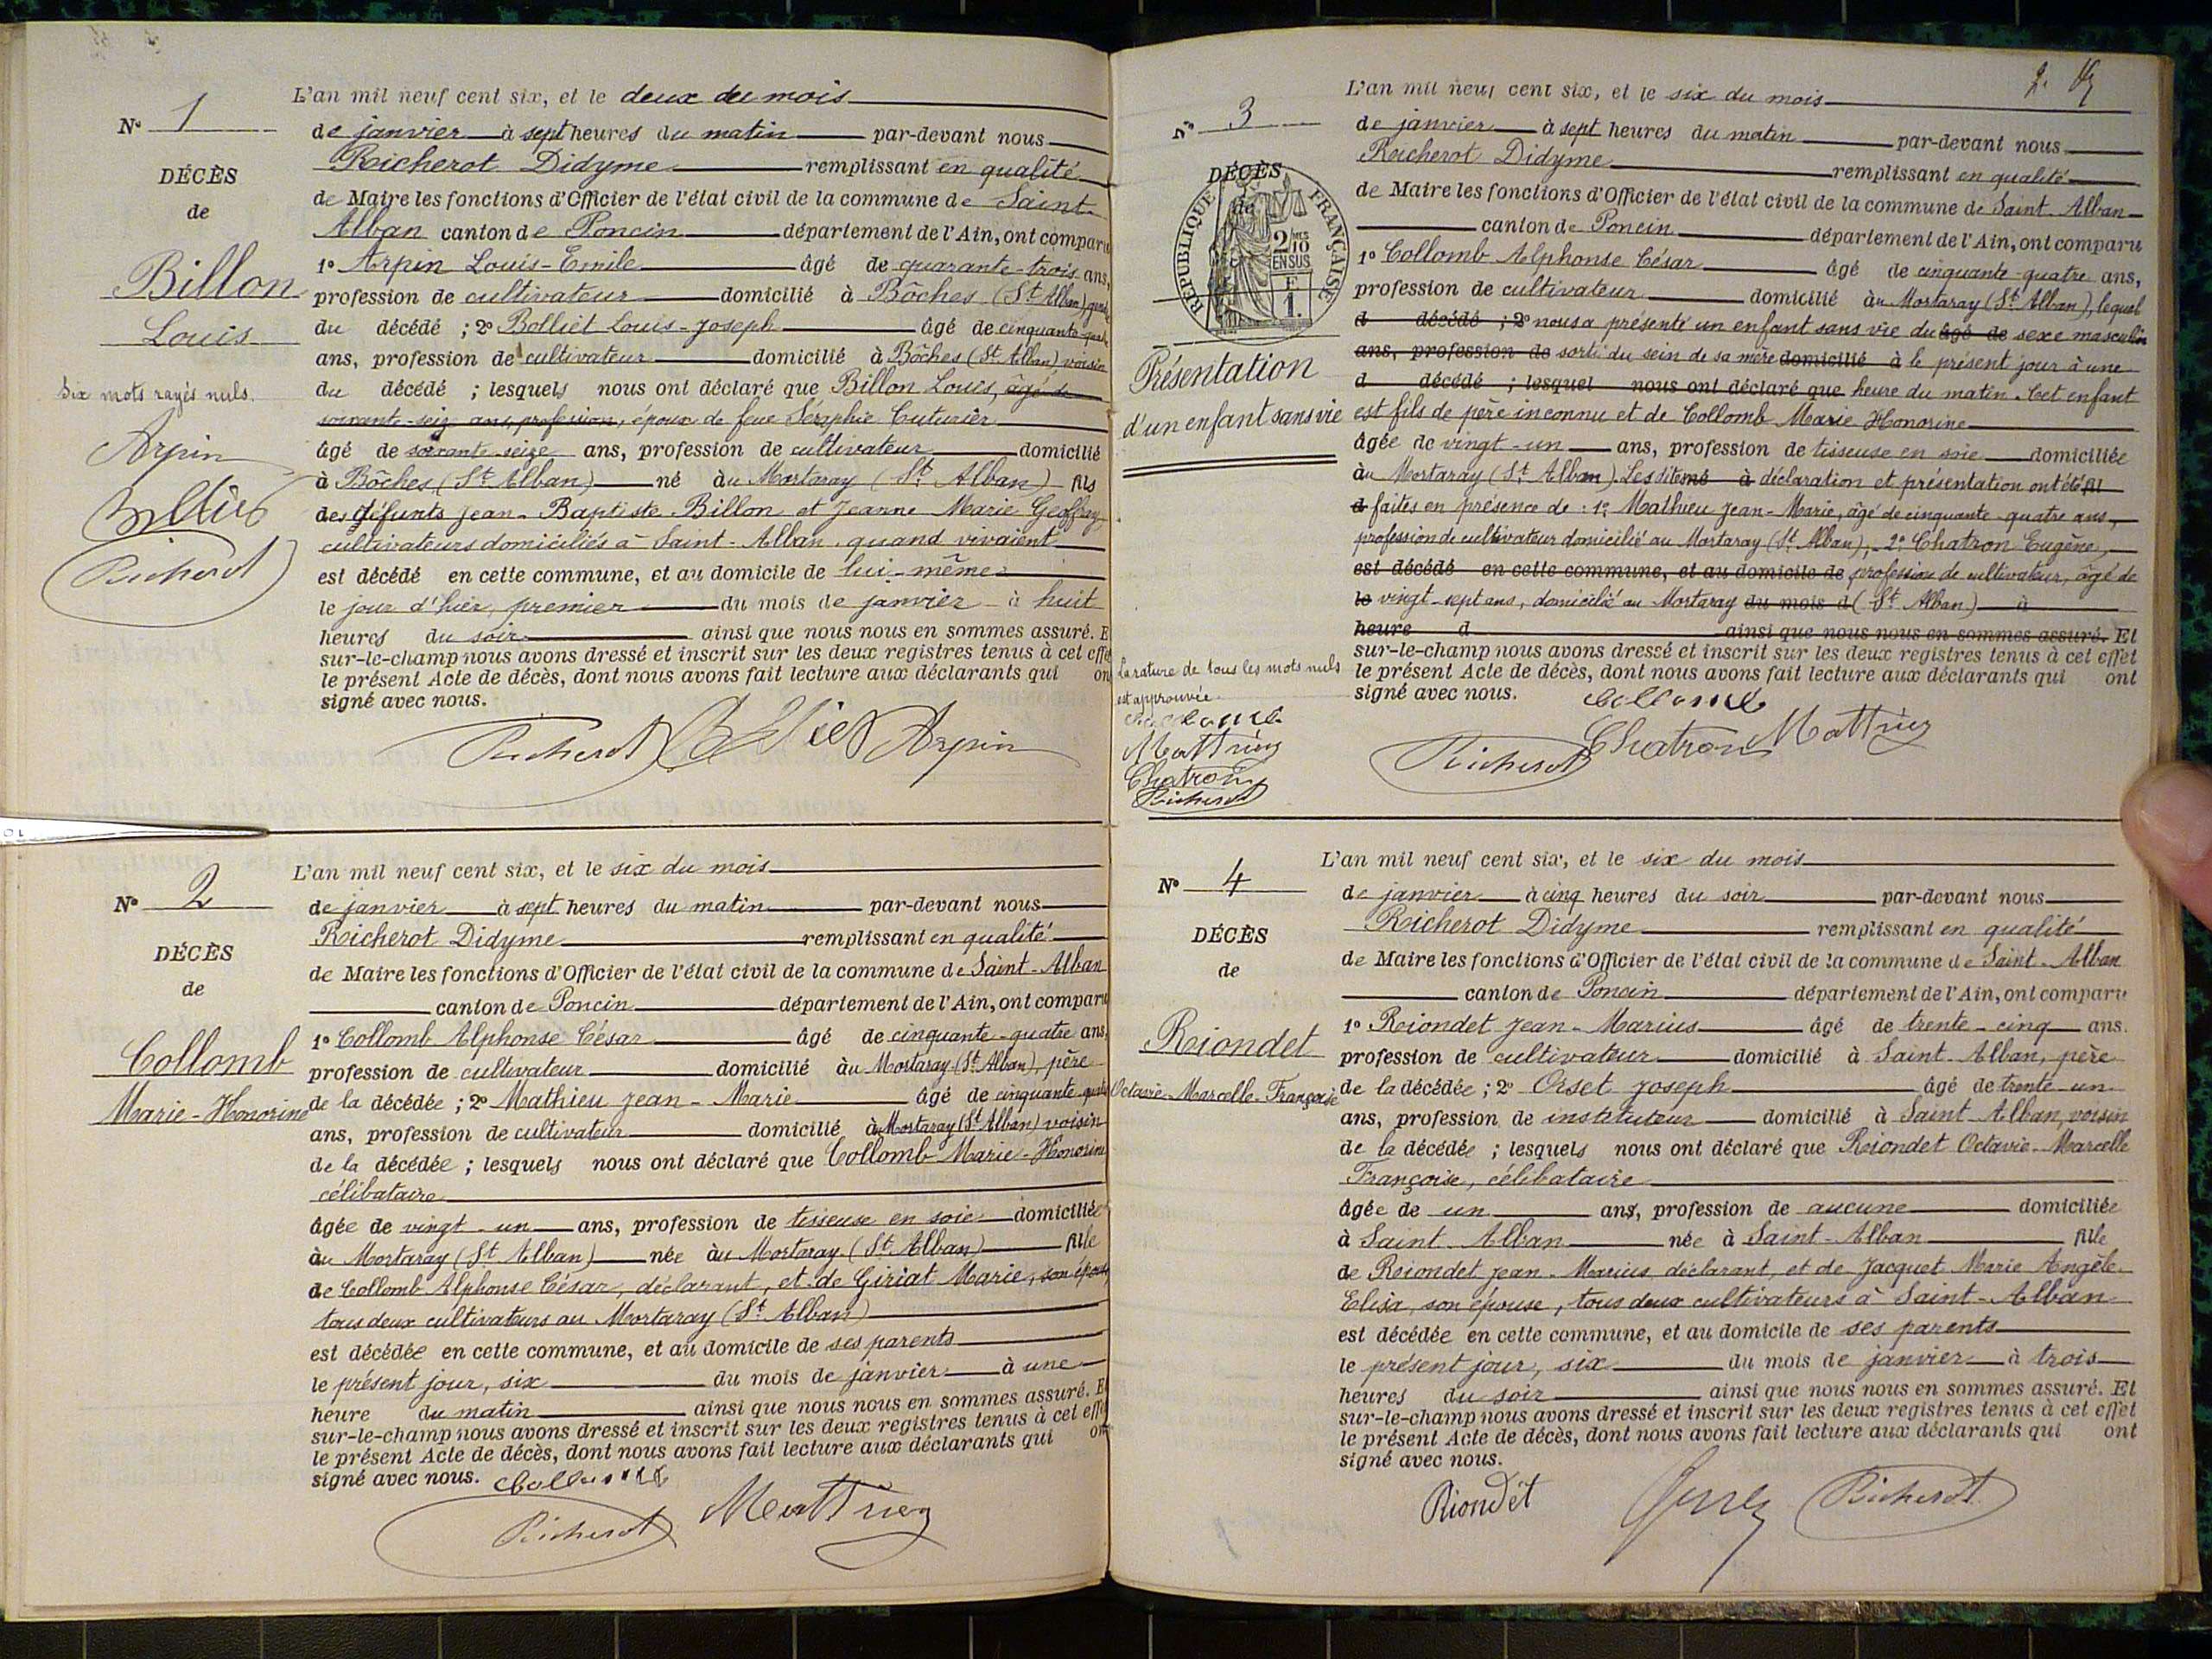 N° 1
DÉCÈS
de
Billon
Louis
Six mots rayés nuls.
Arpin
Richerot
L'an mil neuf cent six, et le deux du mois
de janvier à sept heures du matin par-devant nous
Richerot Didyme remplissant en qualité
de Maire les fonctions d'Officier de l'état civil de la commune de Saint-
Alban canton de Poncin département de l'Ain, ont comparu
1° Arpin Louis-Emile âgé de quarante-trois ans,
profession de cultivateur domicilié à Bôches (St Alban)
du décédé ; 2° Bolliet Louis-Joseph âgé de cinquante-
ans, profession de cultivateur domicilié à Bôches (St Alban) voisin
du décédé ; lesquels nous ont déclaré que Billon Louis, âgé de
soixante-seize ans, profession, époux de feue Séraphie Cuturier
âgé de soixante-seize ans, profession de cultivateur domicilié
à Bôches (St Alban) né au Mortaray (St Alban) fils
des défunts Jean-Baptiste Billon et Jeanne Marie Geoffray
cultivateurs domiciliés à Saint-Alban quand vivaient
est décédé en cette commune, et au domicile de lui-même
le jour d'hier, premier du mois de janvier à huit
heures du soir ainsi que nous nous en sommes assuré. E
sur-le-champ nous avons dressé et inscrit sur les deux registres tenus à cet effet
le présent Acte de décès, dont nous avons fait lecture aux déclarants qui on
signé avec nous.
Richerot Arpin
N° 2
DÉCÈS
de
Collomb
Marie-Honorine
L'an mil neuf cent six, et le six du mois
de janvier à sept heures du matin par-devant nous
Richerot Didyme remplissant en qualité
de Maire les fonctions d'Officier de l'état civil de la commune de Saint-Alban
canton de Poncin département de l'Ain, ont comparu
1° Collomb Alphonse César âgé de cinquante-quatre ans,
profession de cultivateur domicilié au Mortaray (St Alban), père
de la décédée ; 2° Mathieu Jean-Marie âgé de cinquante-quatre
ans, profession de cultivateur domicilié au Mortaray (St Alban) voisin
de la décédée ; lesquels nous ont déclaré que Collomb Marie-Honorine
célibataire
âgée de vingt-un ans, profession de tisseuse en soie domiciliée
au Mortaray (St Alban) née au Mortaray (St Alban) fille
de Collomb Alphonse César, déclarant, et de Giriat Marie, son épouse,
tous deux cultivateurs au Mortaray (St Alban)
est décédée en cette commune, et au domicile de ses parents
le présent jour, six du mois de janvier à une
heure du matin ainsi que nous nous en sommes assuré. E
sur-le-champ nous avons dressé et inscrit sur les deux registres tenus à cet effe
le présent Acte de décès, dont nous avons fait lecture aux déclarants qui on
signé avec nous. Collomb
Richerot Matthieu
2.
N° 3
DÉCÈS
de
RÉPUBLIQUE FRANÇAISE
2/10 EN SUS
F 1.
Présentation
d'un enfant sans vie
La rature de tous les mots nuls
est approuvée.
Collomb
Matthieu
Chatron
Richerot
L'an mil neuf cent six, et le six du mois
de janvier à sept heures du matin par-devant nous
Richerot Didyme remplissant en qualité
de Maire les fonctions d'Officier de l'état civil de la commune de Saint-Alban
canton de Poncin département de l'Ain, ont comparu
1° Collomb Alphonse César âgé de cinquante-quatre ans,
profession de cultivateur domicilié au Mortaray (St Alban), lequel
d décédé ; 2° nous a présenté un enfant sans vie du âgé de sexe masculin
ans, profession de sorti du sein de sa mère domicilié à le présent jour à une
d décédé ; lesquel nous ont déclaré que heure du matin. Cet enfant
est fils de père inconnu et de Collomb Marie Honorine
âgée de vingt-un ans, profession de tisseuse en soie domiciliée
au Mortaray (St Alban). Les dites né à déclaration et présentation ont été fil
d faites en présence de : 1° Mathieu Jean-Marie, âgé de cinquante-quatre ans,
profession de cultivateur domicilié au Mortaray (St Alban); 2° Chatron Eugène,
est décédé en cette commune, et au domicile de profession de cultivateur, âgé de
le vingt-sept ans, domicilié au Mortaray du mois d (St Alban) à
heure d ainsi que nous nous en sommes assuré. Et
sur-le-champ nous avons dressé et inscrit sur les deux registres tenus à cet effet
le présent Acte de décès, dont nous avons fait lecture aux déclarants qui ont
signé avec nous. Collomb
Richerot Chatron Matthieu
N° 4
DÉCÈS
de
Riondet
Octavie-Marcelle-Françoise
L'an mil neuf cent six, et le six du mois
de janvier à cinq heures du soir par-devant nous
Richerot Didyme remplissant en qualité
de Maire les fonctions d'Officier de l'état civil de la commune de Saint-Alban
canton de Poncin département de l'Ain, ont comparu
1° Riondet Jean-Marius âgé de trente-cinq ans.
profession de cultivateur domicilié à Saint-Alban, père
de la décédée ; 2° Orset Joseph âgé de trente-un
ans, profession de instituteur domicilié à Saint-Alban, voisin
de la décédée ; lesquels nous ont déclaré que Riondet Octavie-Marcelle
Françoise, célibataire
âgée de un ans, profession de aucune domiciliée
à Saint-Alban née à Saint-Alban fille
de Riondet Jean-Marius, déclarant, et de Jacquet Marie Angèle
Elisa, son épouse, tous deux cultivateurs à Saint-Alban
est décédée en cette commune, et au domicile de ses parents
le présent jour, six du mois de janvier à trois
heures du soir ainsi que nous nous en sommes assuré. Et
sur-le-champ nous avons dressé et inscrit sur les deux registres tenus à cet effet
le présent Acte de décès, dont nous avons fait lecture aux déclarants qui ont
signé avec nous.
Riondet Richerot